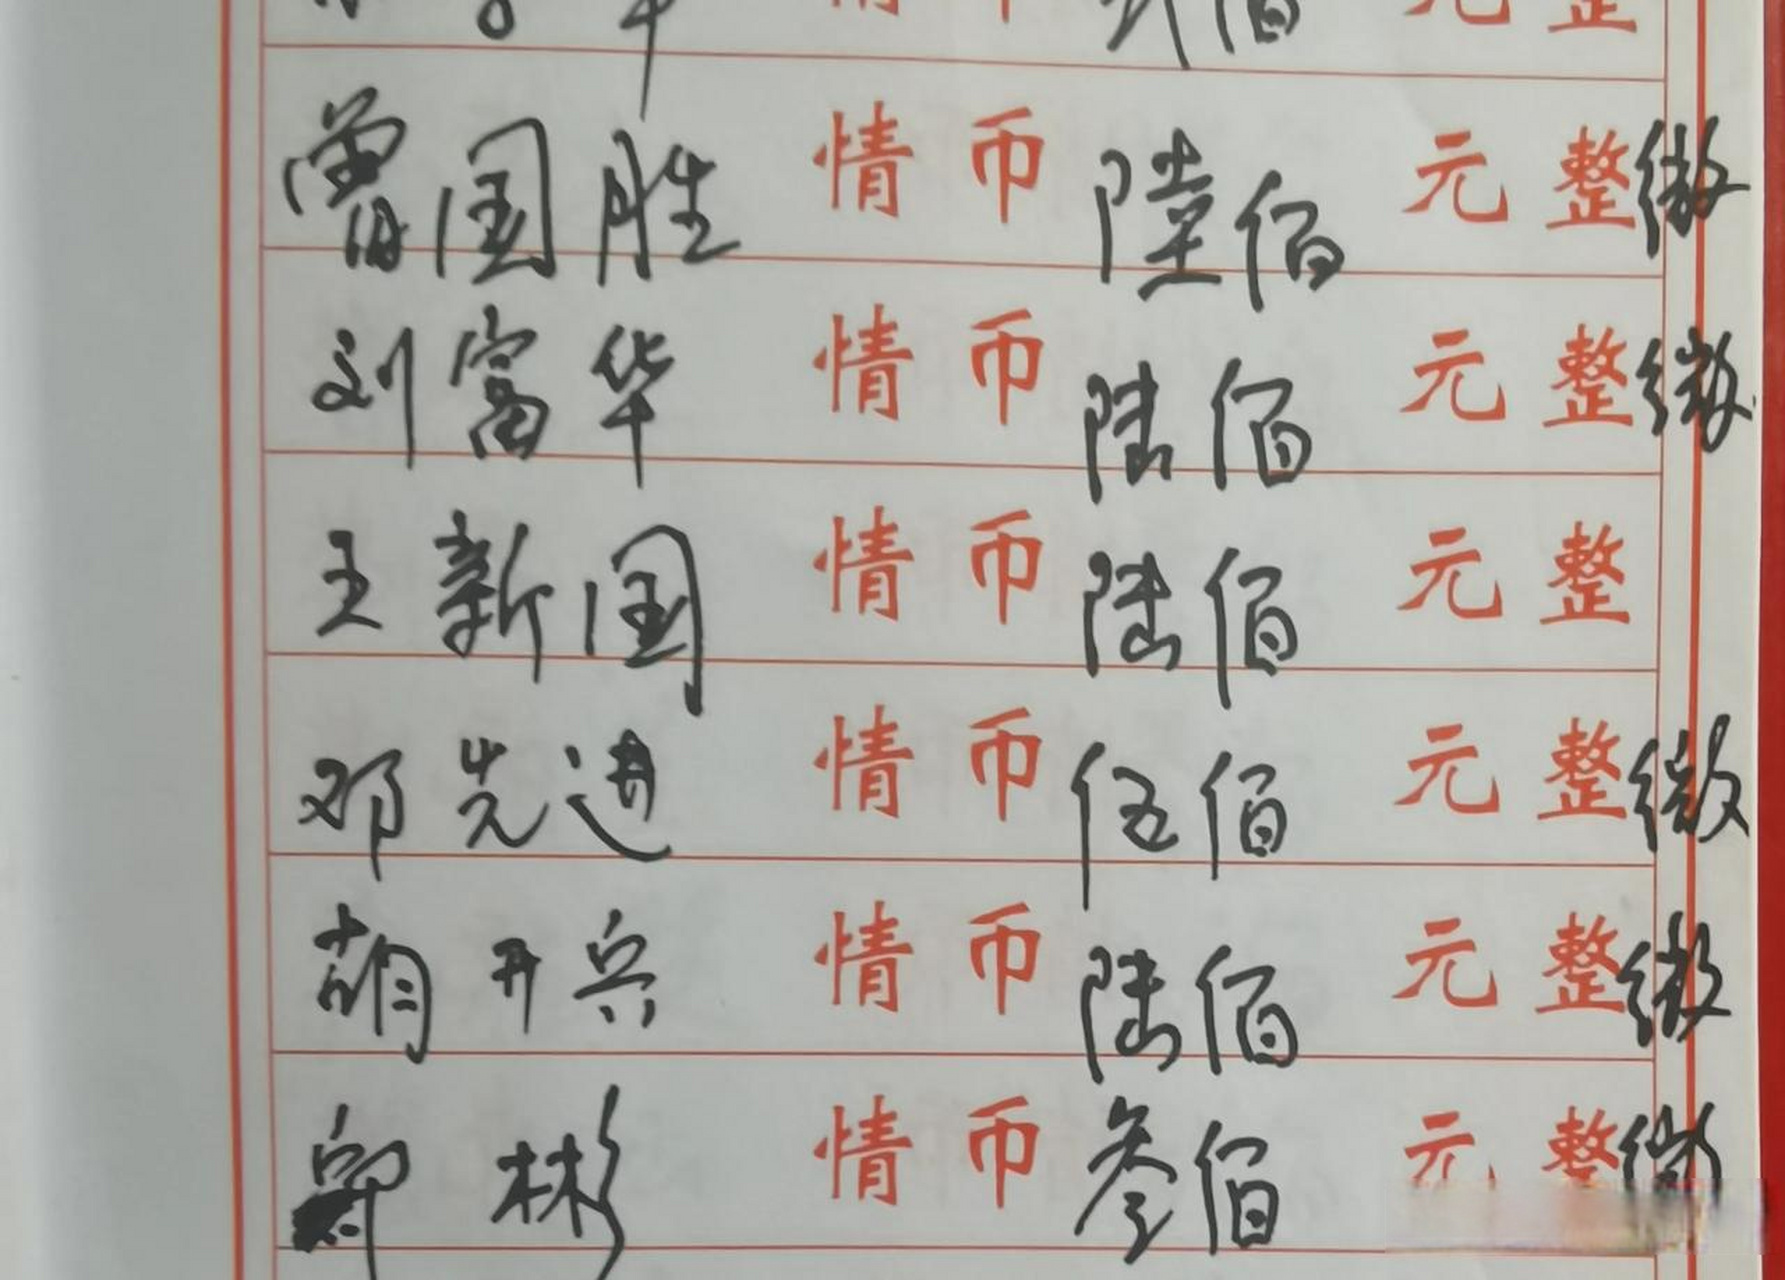 情币 佰元整
曾国胜 情币 陸佰 元整 微
刘富华 情币 陆佰 元整 微
王新国 情币 陆佰 元整
邓先进 情币 伍佰 元整 微
胡开兵 情币 陆佰 元整 微
彬 情币 叁佰 元整 微